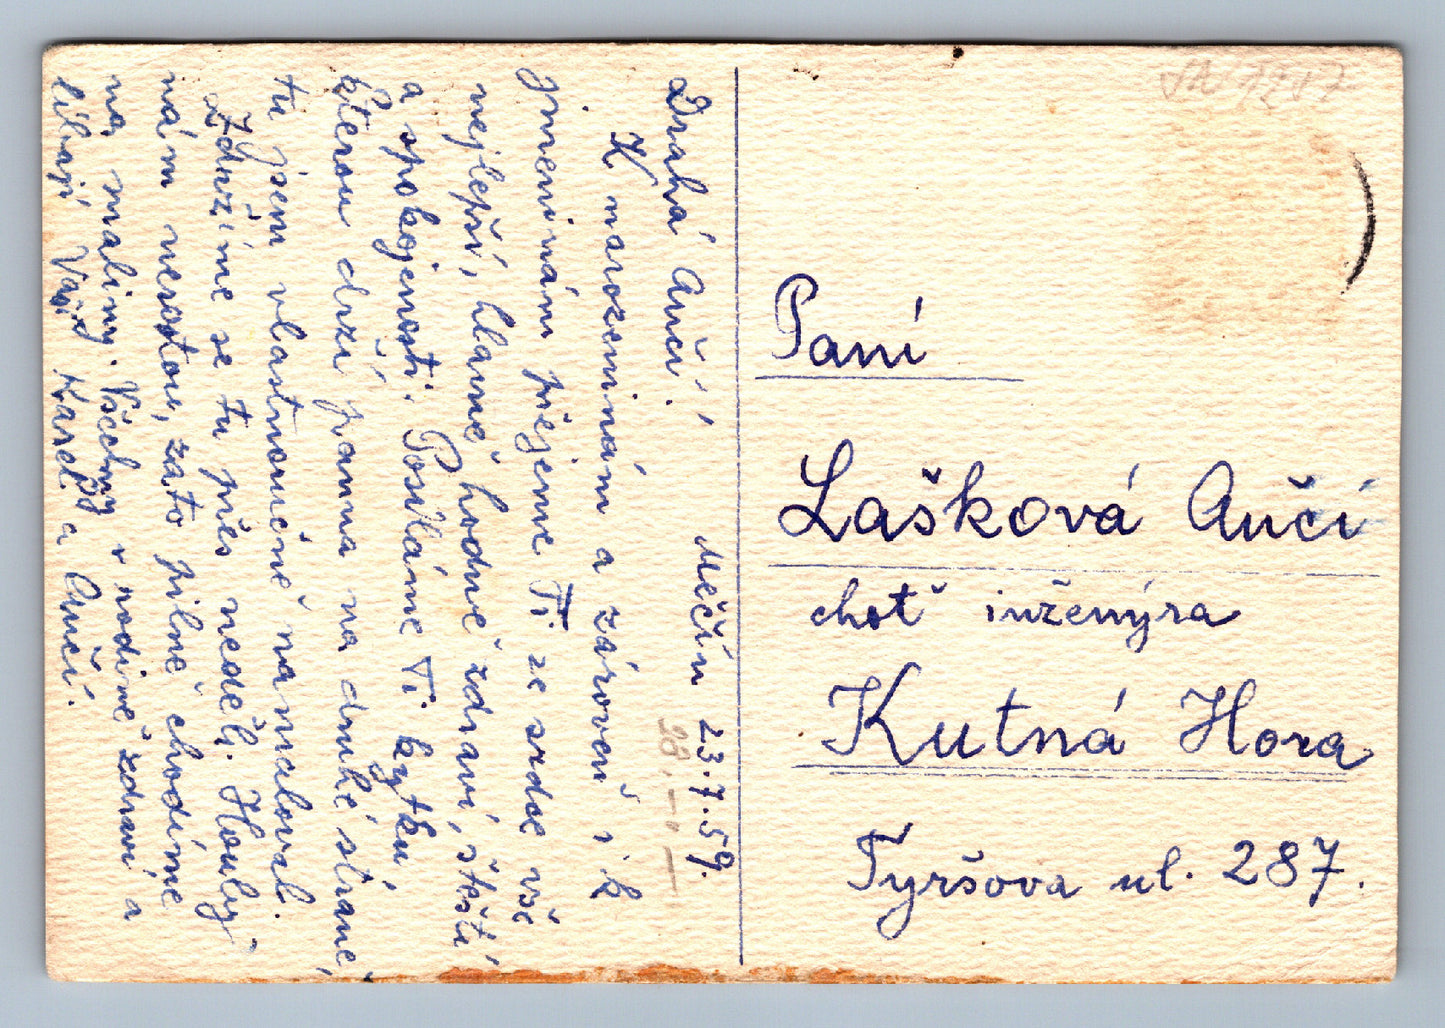 Drahá Aučí! Měčín 23.7.59.
K narozeninám a zároveň i k
jmeninám přejeme Ti ze srdce vše
nejlepší, hlavně hodně zdraví, štěstí
a spokojenosti. Posíláme Ti kytku,
kterou drží panna na druhé straně,
tu jsem vlastnoručně namaloval.
Zdržíme se tu přes neděli. Houby
nám nerostou, zato pilně chodíme
na maliny. Všechny v rodině zdraví a
líbají Vaši Karel a Aučí.
28.–.–
Paní
Lašková Aučí
choť inženýra
Kutná Hora
Tyršova ul. 287.